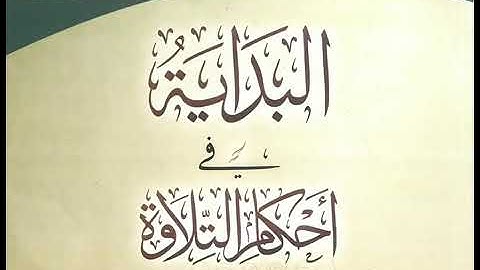 البَدَايَةُ
في
أحْكَامِ التِّلَاوَة